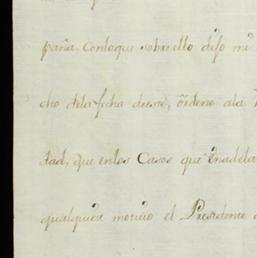 paña, conloque sobre ello dijo mi
cho dela fecha deeste, ordeno ala
dad, que enlos Casos que enadela
qualquiera motivo el Presidente